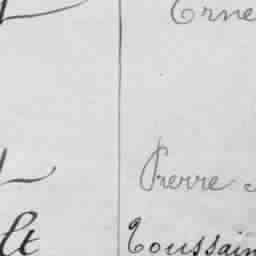 Erne
Pierre
lt Toussain